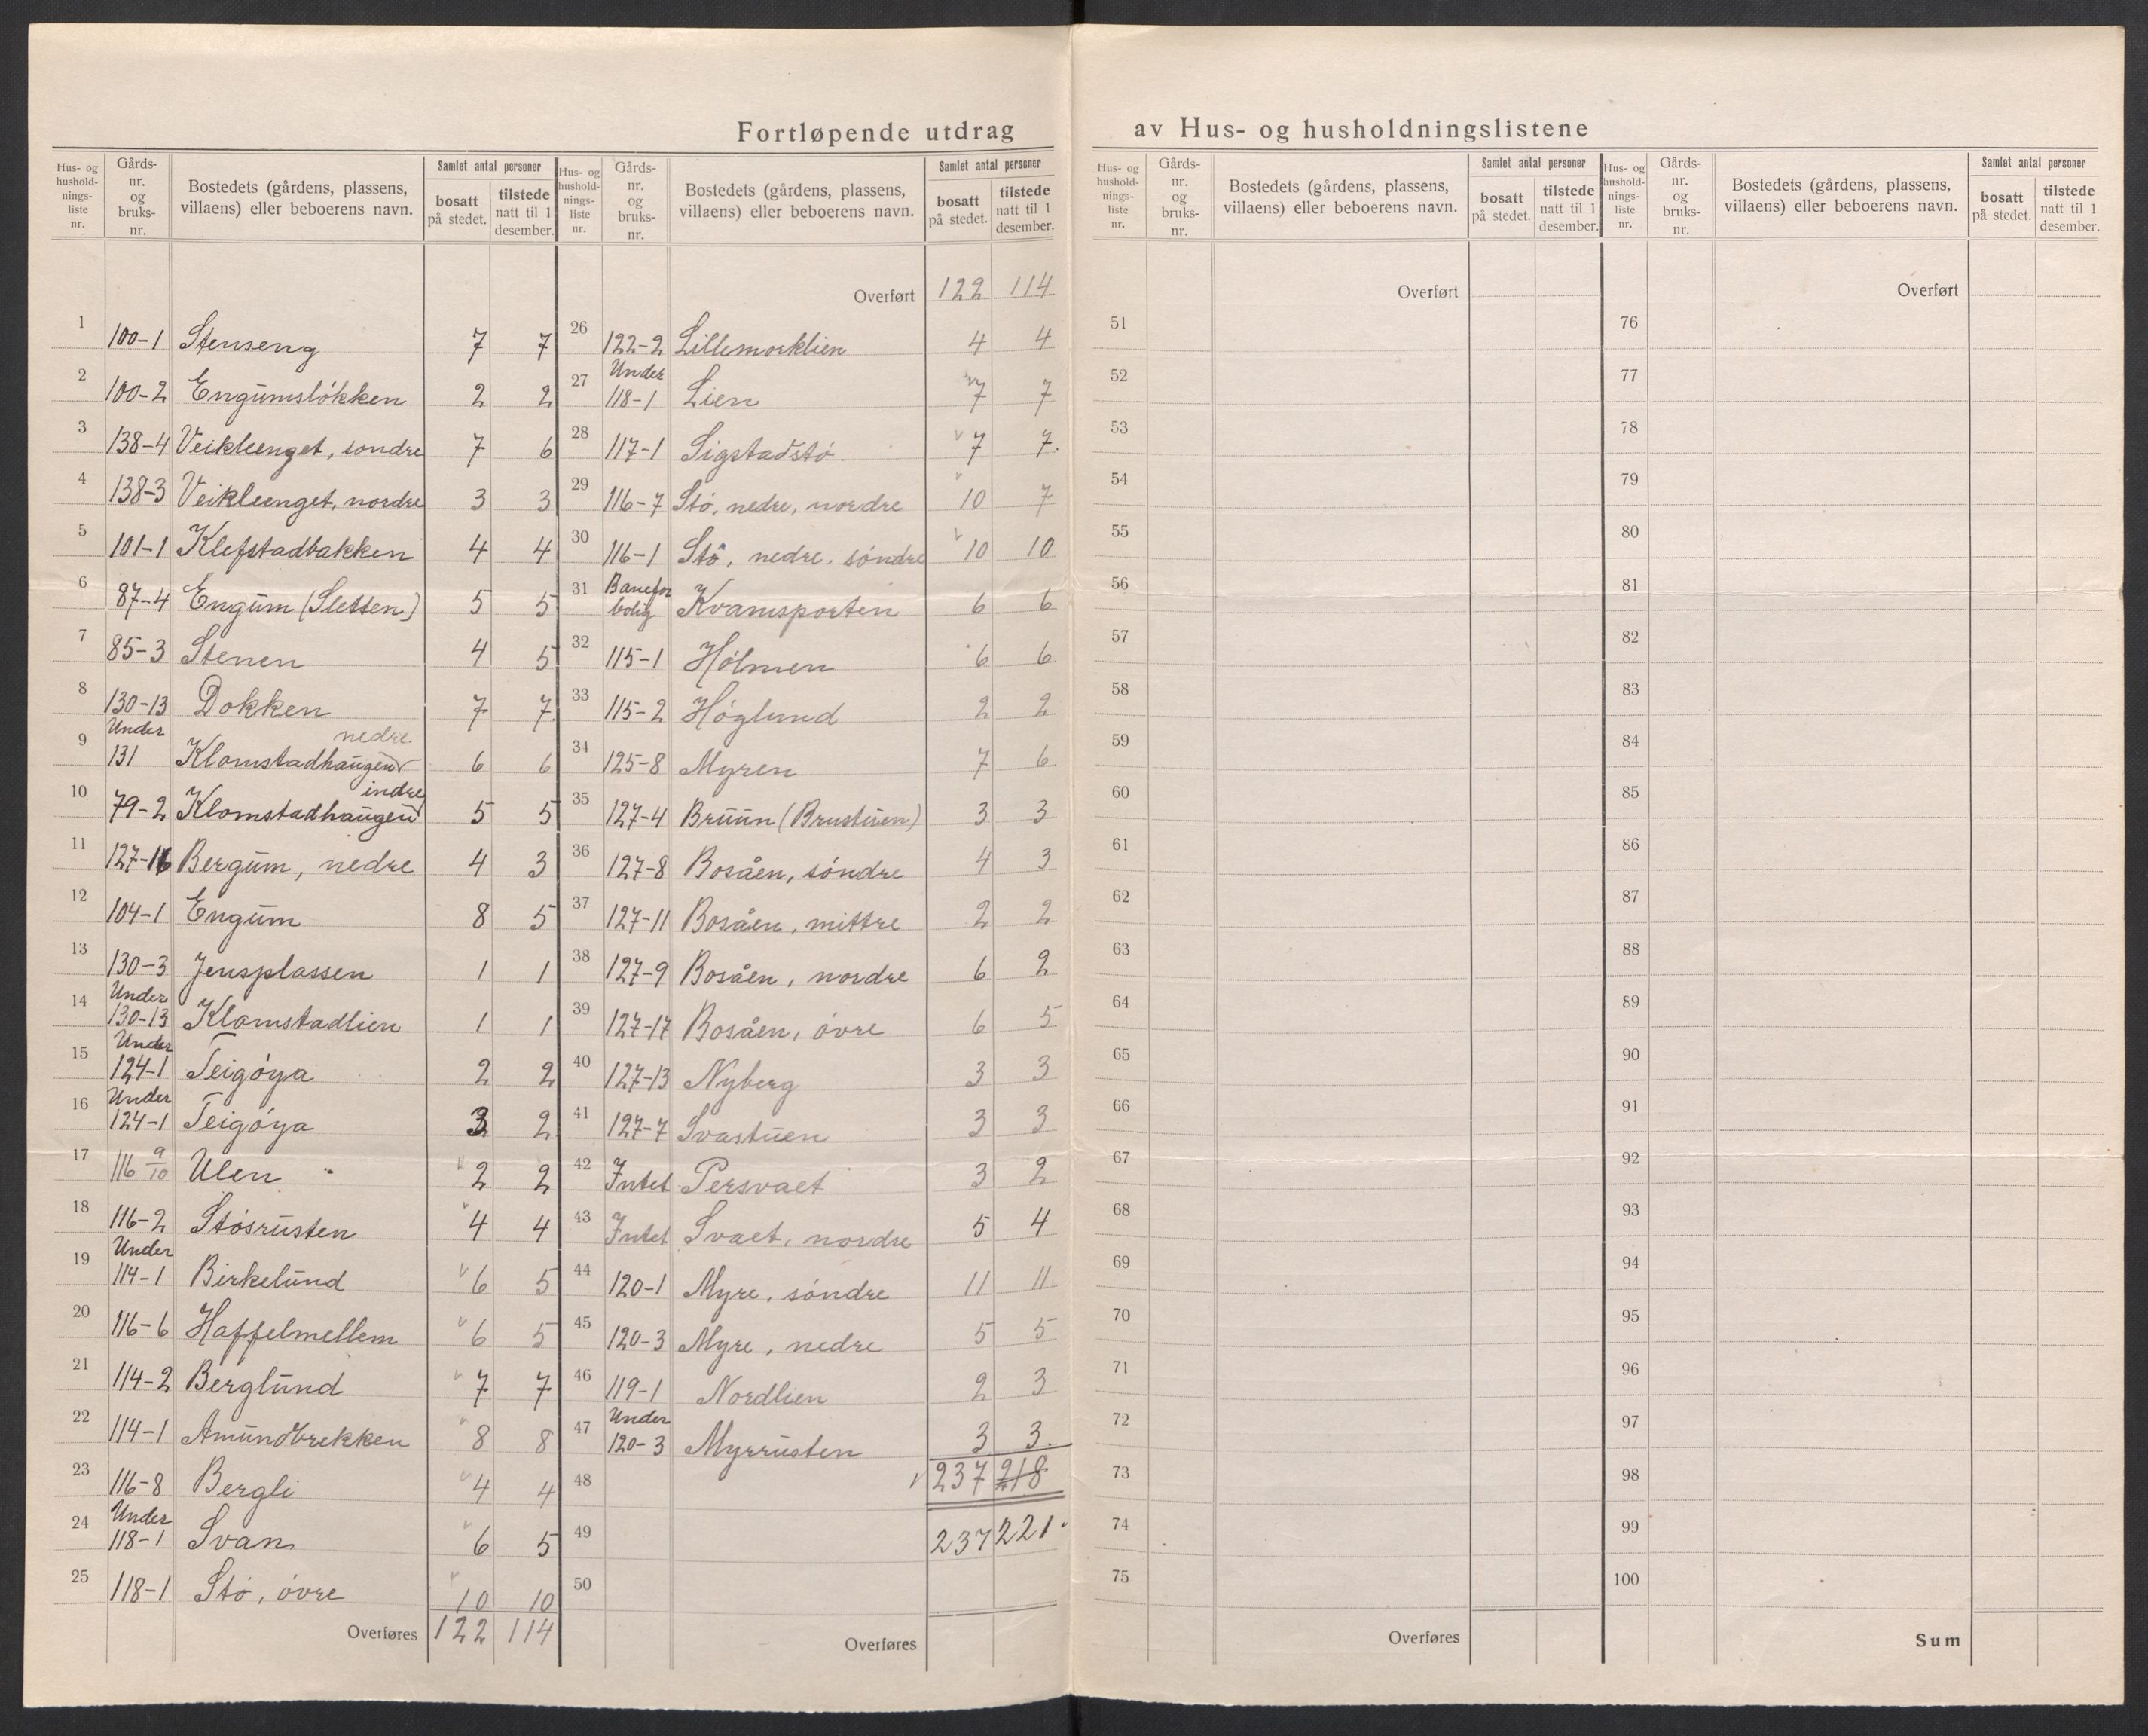 Fortløpende utdrag av Hus- og husholdningslistene
Hus- og hushold-nings-liste nr. | Gårds-nr. og bruks-nr. | Bostedets (gårdens, plassens, villaens) eller beboerens navn. | Samlet antal personer | bosatt på stedet. | tilstede natt til 1 desember.
1 100-1 Stenseng 7 7
2 100-2 Engumsløkken 2 2
3 138-4 Veikleenget, søndre 7 6
4 138-3 Veikleenget, nordre 3 3
5 101-1 Klefstadbakken 4 4
6 87-4 Engum (Sletten) 5 5
7 85-3 Stenen 4 5
8 130-13 Dokken 7 7
9 Under 131 Klomstadhaugen nedre 6 6
10 79-2 Klomstadhaugen indre 5 5
11 127-16 Bergum, nedre 4 3
12 104-1 Engum 8 5
13 130-3 Jensplassen 1 1
14 Under 130-13 Klomstadlien 1 1
15 Under 124-1 Teigøya 2 2
16 Under 124-1 Teigøya 3 2
17 116 9/10 Ulen 2 2
18 116-2 Støsrusten 4 4
19 Under 114-1 Birkelund 6 5
20 116-6 Haffelmellem 6 5
21 114-2 Berglund 7 7
22 114-1 Amundbrekken 8 8
23 116-8 Bergli 4 4
24 Under 118-1 Svan 6 5
25 118-1 Stø, øvre 10 10
Overføres 122 114
Hus- og hushold-nings-liste nr. | Gårds-nr. og bruks-nr. | Bostedets (gårdens, plassens, villaens) eller beboerens navn. | Samlet antal personer | bosatt på stedet. | tilstede natt til 1 desember.
Overført 122 114
26 122-2 Lillemorklien 4 4
27 Under 118-1 Lien 7 7
28 117-1 Sigstadstø 7 7
29 116-7 Stø, nedre, nordre 10 7
30 116-1 Stø, nedre, søndre 10 10
31 Banefor bolig Kvamsporten 6 6
32 115-1 Hølmen 6 6
33 115-2 Høglund 2 2
34 125-8 Myren 7 6
35 127-4 Bruun (Brustuen) 3 3
36 127-8 Bosåen, søndre 4 3
37 127-11 Bosåen, mittre 2 2
38 127-9 Bosåen, nordre 6 2
39 127-17 Bosåen, øvre 6 5
40 127-13 Nyberg 3 3
41 127-7 Svastuen 3 3
42 Intet Persvaet 3 2
43 Intet Svaet, nordre 5 4
44 120-1 Myre, søndre 11 11
45 120-3 Myre, nedre 5 5
46 119-1 Nordlien 2 3
47 Under 120-3 Myrrusten 3 3
48 237 218
49 237 221
50
Overføres
Hus- og hushold-nings-liste nr. | Gårds-nr. og bruks-nr. | Bostedets (gårdens, plassens, villaens) eller beboerens navn. | Samlet antal personer | bosatt på stedet. | tilstede natt til 1 desember.
Overført
51
52
53
54
55
56
57
58
59
60
61
62
63
64
65
66
67
68
69
70
71
72
73
74
75
Overføres
Hus- og hushold-nings-liste nr. | Gårds-nr. og bruks-nr. | Bostedets (gårdens, plassens, villaens) eller beboerens navn. | Samlet antal personer | bosatt på stedet. | tilstede natt til 1 desember.
Overført
76
77
78
79
80
81
82
83
84
85
86
87
88
89
90
91
92
93
94
95
96
97
98
99
100
Sum